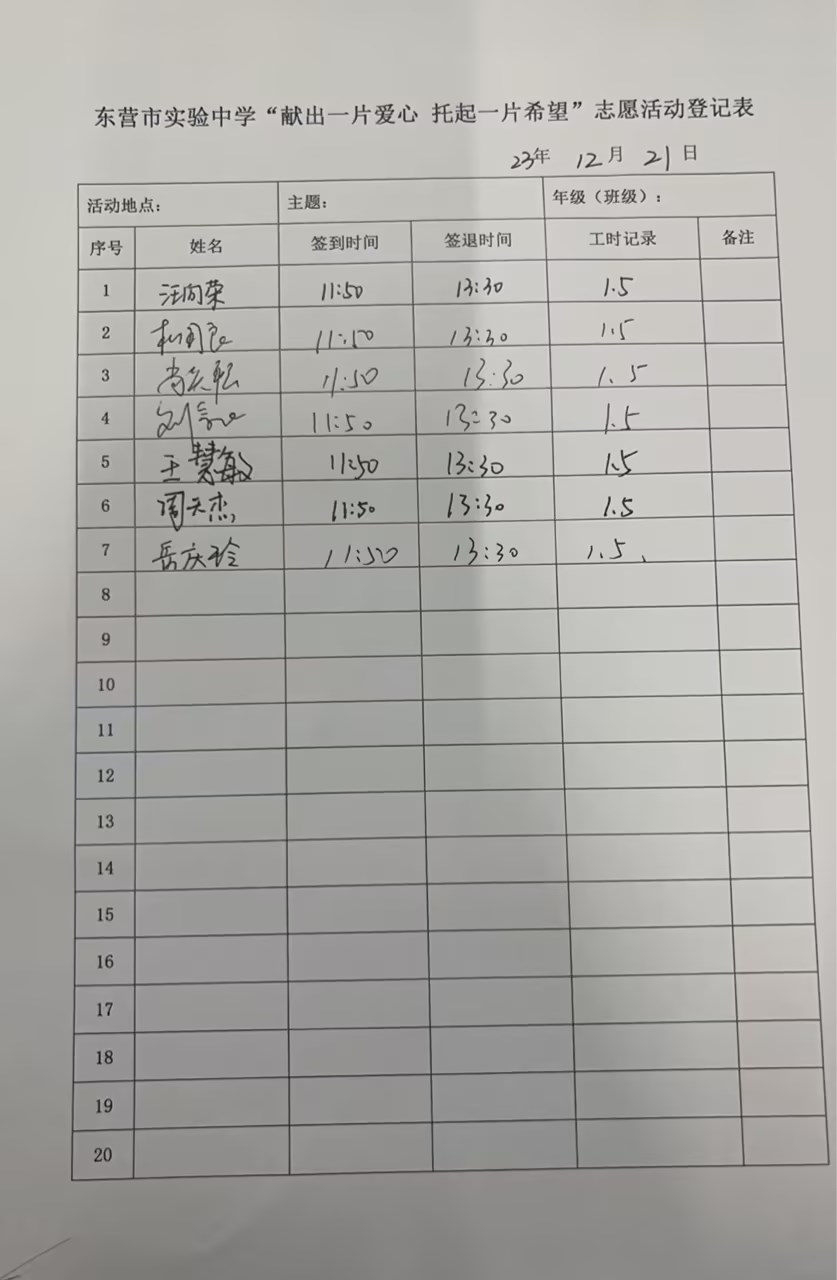 东营市实验中学“献出一片爱心 托起一片希望”志愿活动登记表
23年 12月 21日
活动地点： 主题： 年级（班级）：
序号 姓名 签到时间 签退时间 工时记录 备注
1 汪向荣 11:50 13:30 1.5
2 11:50 13:30 1.5
3 11:50 13:30 1.5
4 刘 11:50 13:30 1.5
5 王慧敏 11:50 13:30 1.5
6 周天杰 11:50 13:30 1.5
7 岳庆玲 11:50 13:30 1.5
8
9
10
11
12
13
14
15
16
17
18
19
20